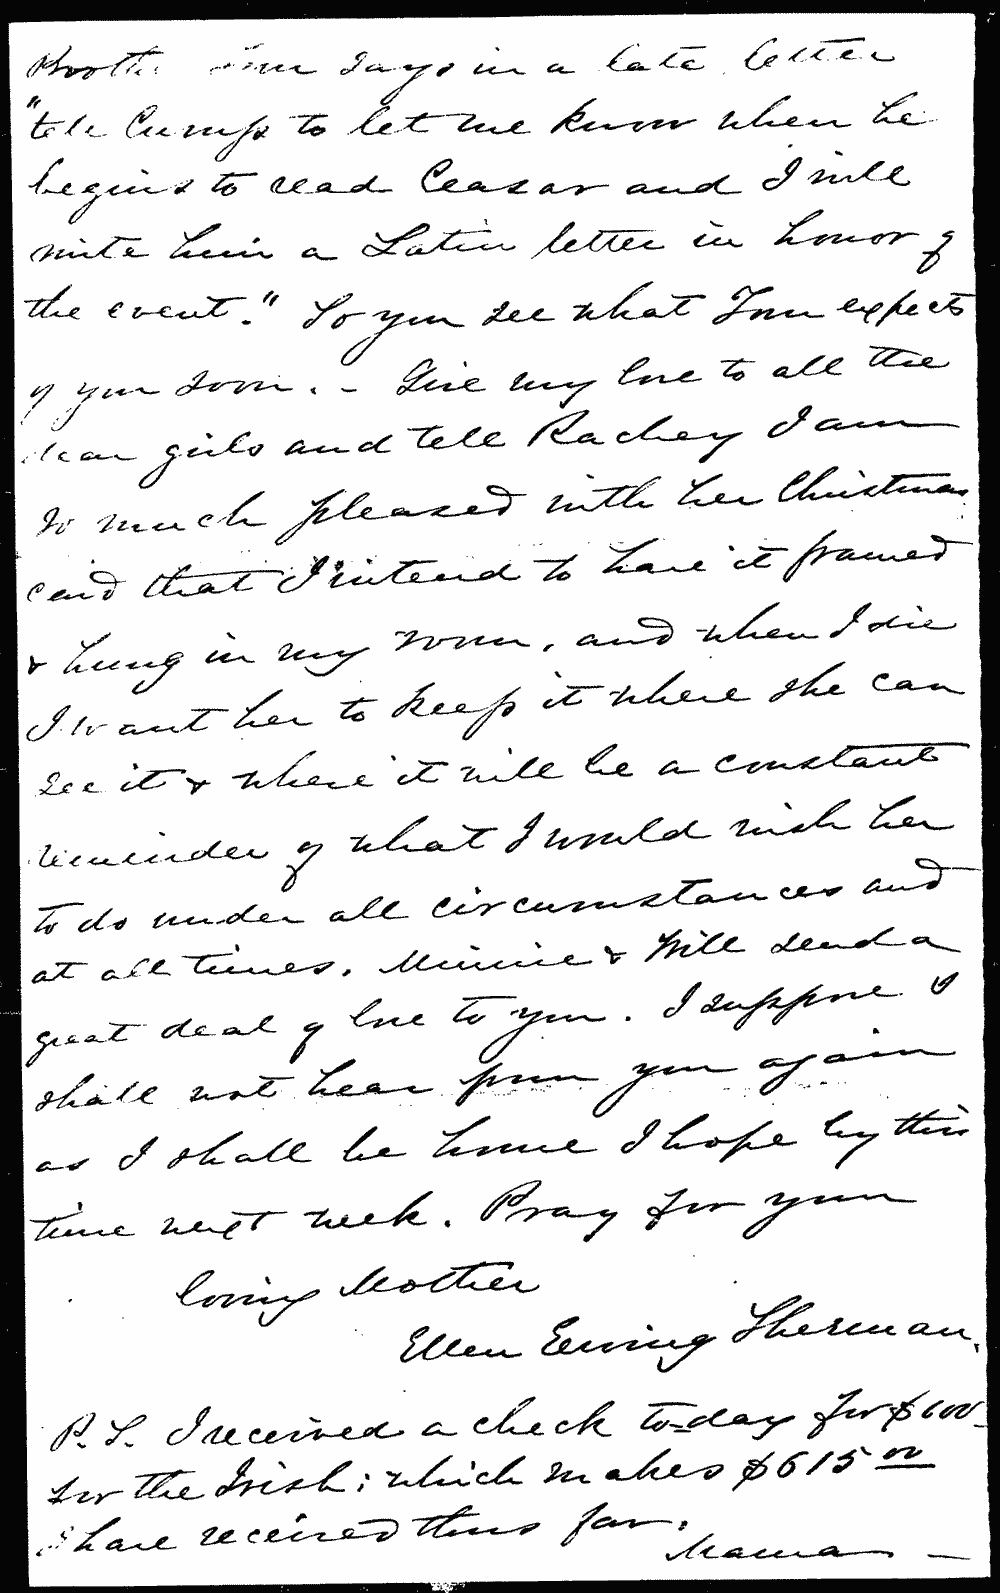 Booth. Tom says in a late letter
"tell Cump to let me know when he
begins to read Ceasar and I will
write him a Latin letter in honor of
the event." So you see what Tom expects
of you soon. – Give my love to all the
dear girls and tell Rachey I am
so much pleased with her Christmas
card that I intend to have it framed
& hung in my room, and when I die
I want her to keep it where she can
see it & where it will be a constant
reminder of what I would wish her
to do under all circumstances and
at all times. Minnie & Will send a
great deal of love to you. I suppose I
shall not hear from you again
as I shall be home I hope by this
time next week. Pray for your
loving Mother
Ellen Ewing Sherman.
P.S. I received a check to-day for $600
for the Irish; which makes $615 00
I have received thus far.
Mama —